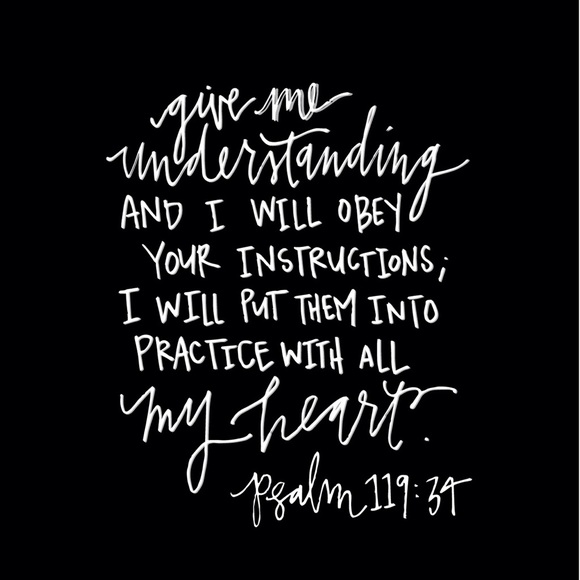 give me
understanding
AND I WILL OBEY
YOUR INSTRUCTIONS;
I WILL PUT THEM INTO
PRACTICE WITH ALL
my heart.
psalm 119:34